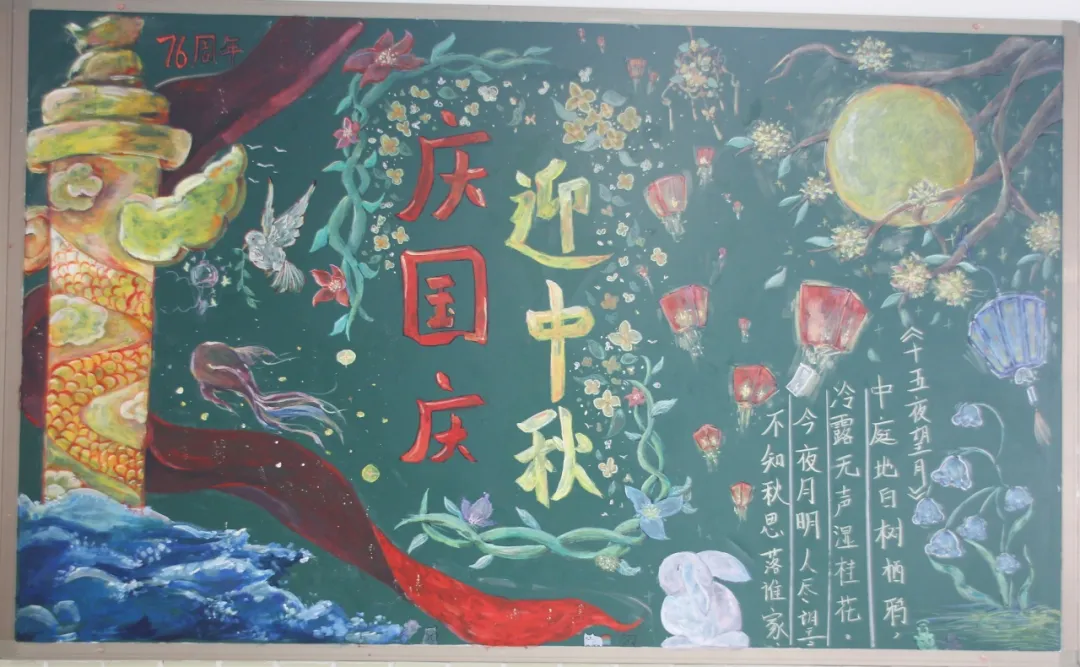 76周年
庆国庆
迎中秋
《十五夜望月》
中庭地白树栖鸦,
冷露无声湿桂花。
今夜月明人尽望
不知秋思落谁家.